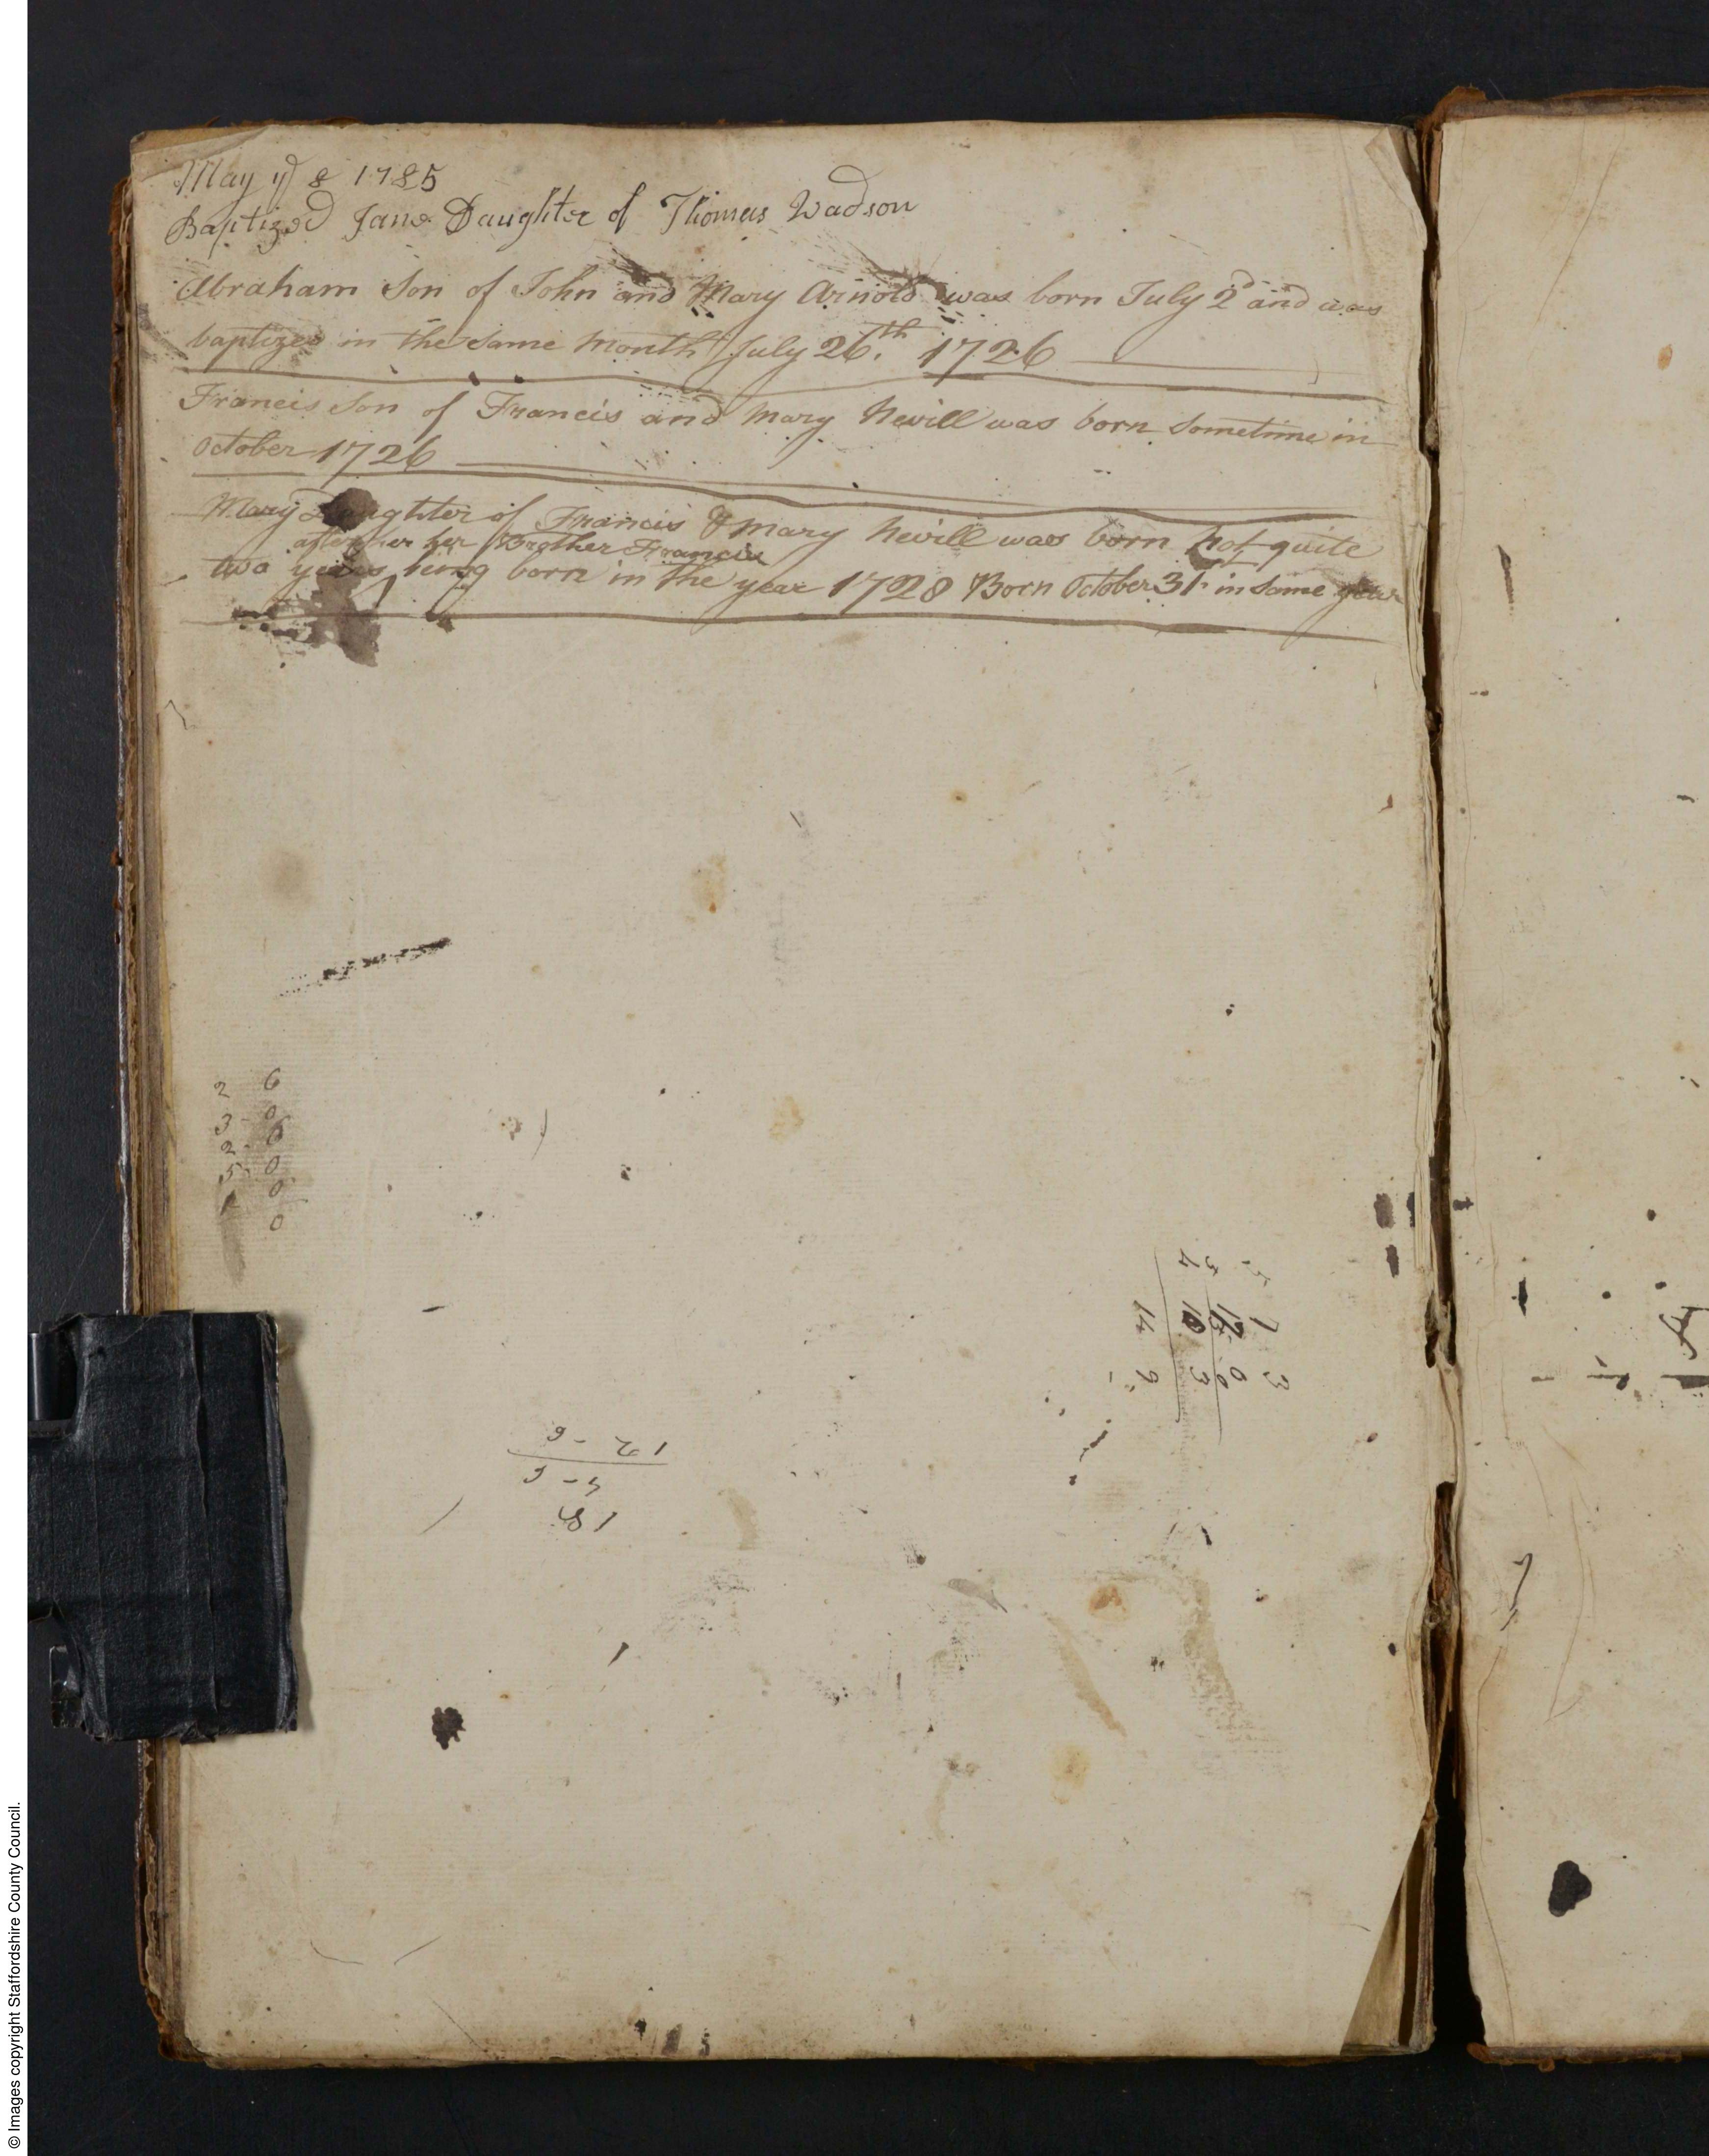 May ye 8 1785
Baptized Jane Daughter of Thomas Wadson
Abraham Son of John and Mary Arnold was born July 2d and was
baptized in the same Month July 26.th 1726
Francis Son of Francis and Mary Nevill was born Sometime in
October 1726
Mary Daughter of Francis & Mary Nevill was born not quite
after her Brother Francis
two years being born in the year 1728 Born October 31. in Same year
2 6
3- 0
2- 6
5- 0
1 0
0
7 3
12 0
10 3
14 9
18
4-6
12-6
© Images copyright Staffordshire County Council.